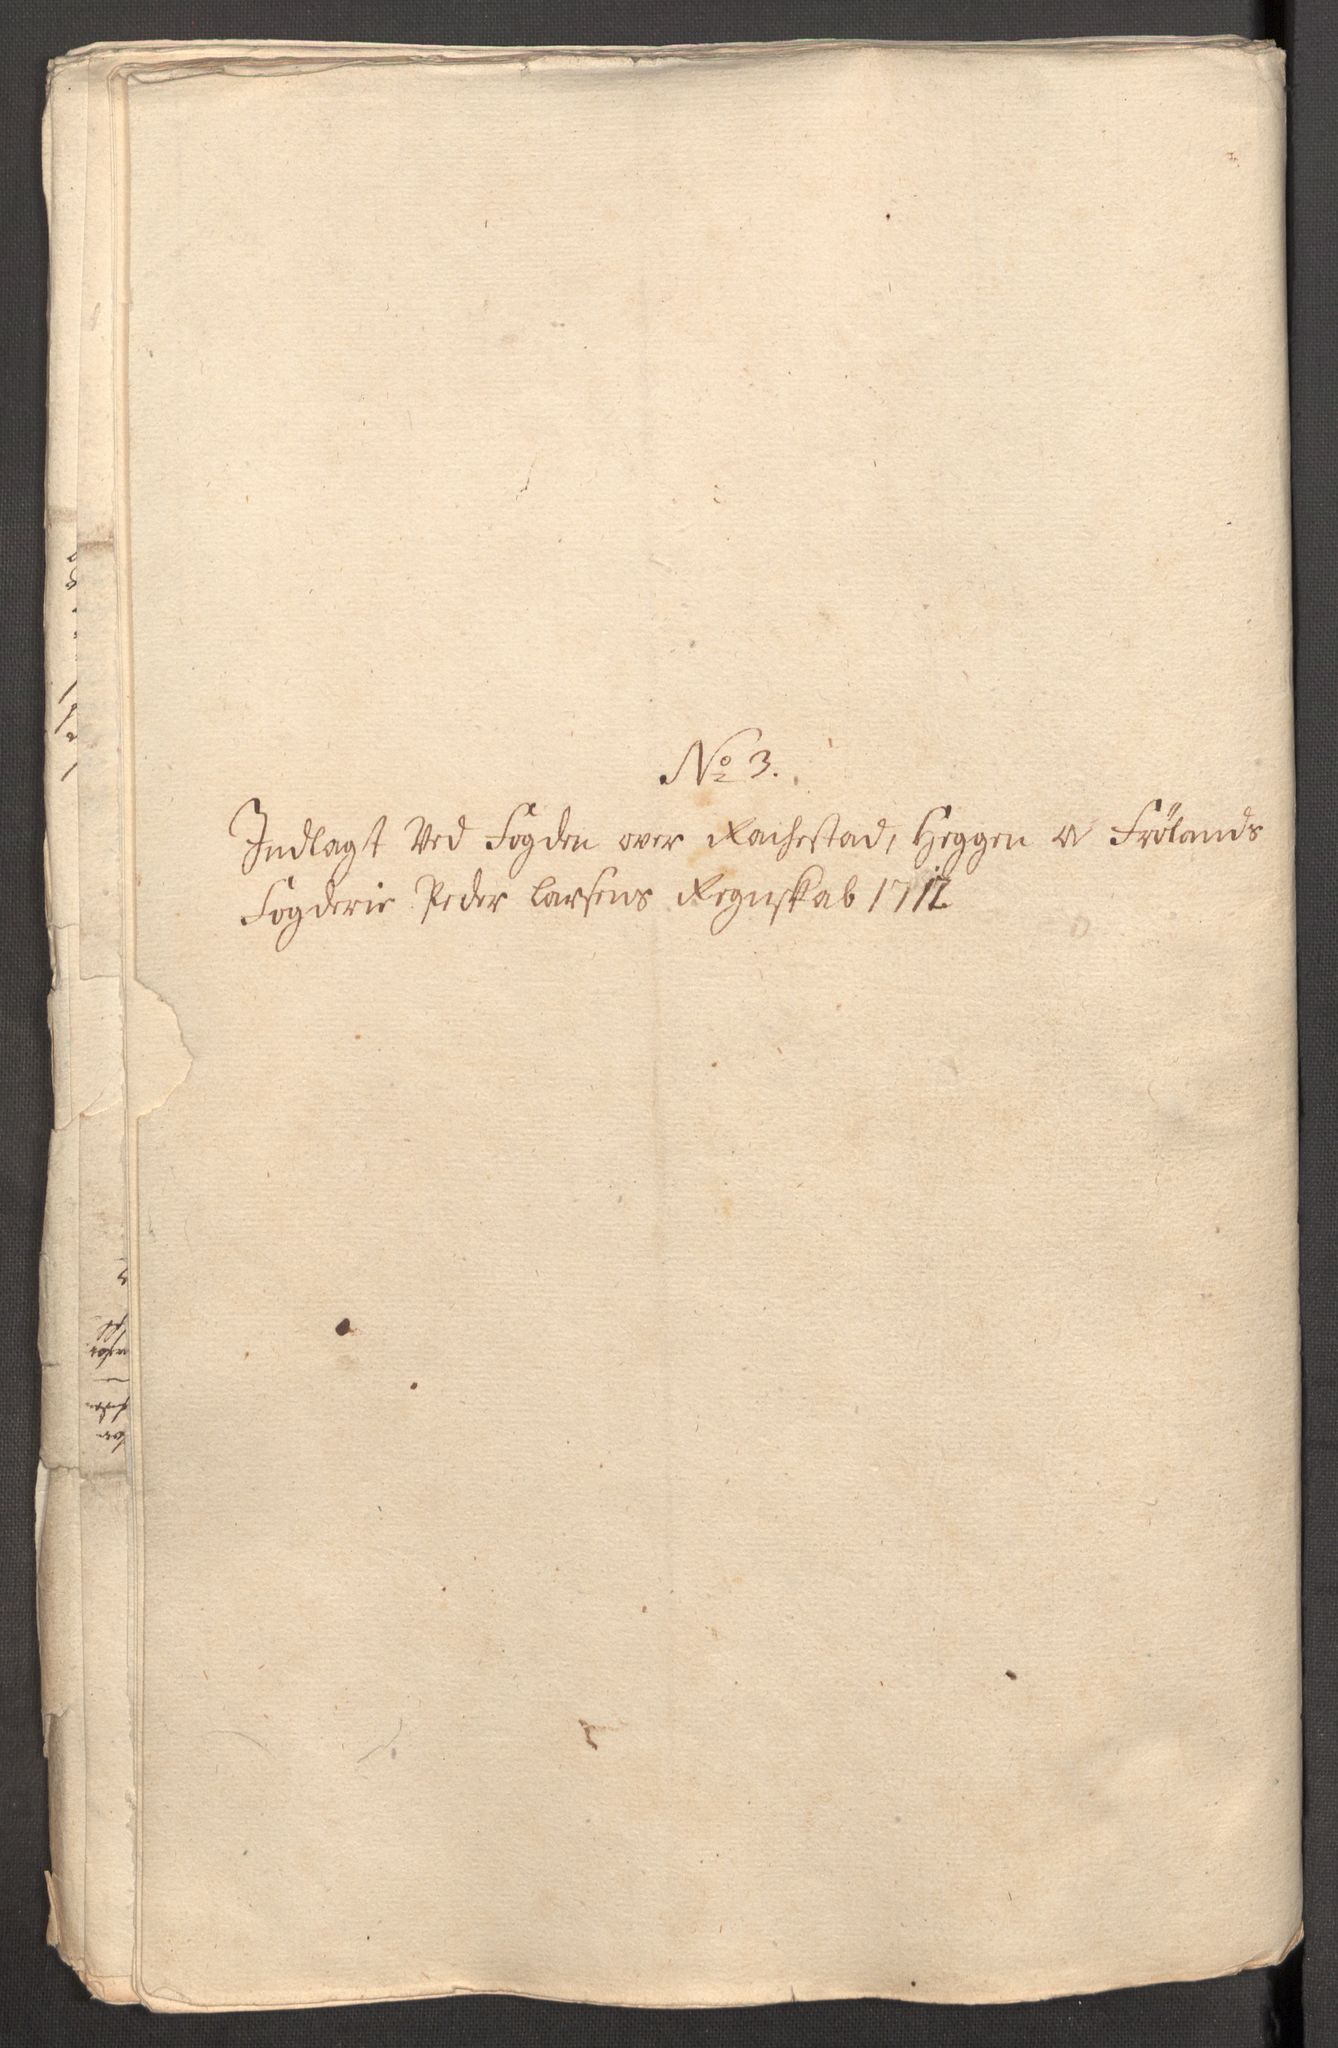 No 3.
Indlagt Ved Fogden over Rachestad, Heggen og Frølands
Fogderie Peder Larsens Regnskab 1712